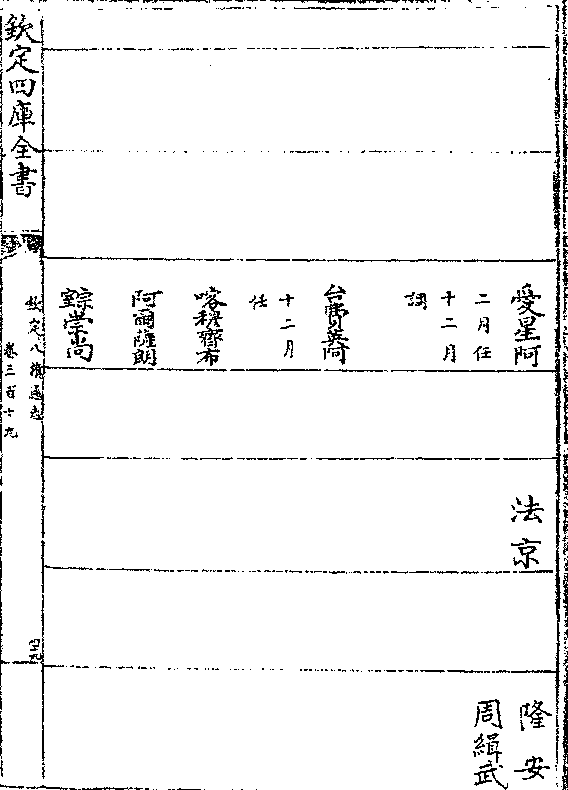 愛星阿
二月任
十二月
調
台費英阿
十二月
任
喀穆齊布
阿爾薩朗
宗室常尚
法京
隆安
周緝武
欽定四庫全書
欽定八旗通志
卷三百十九